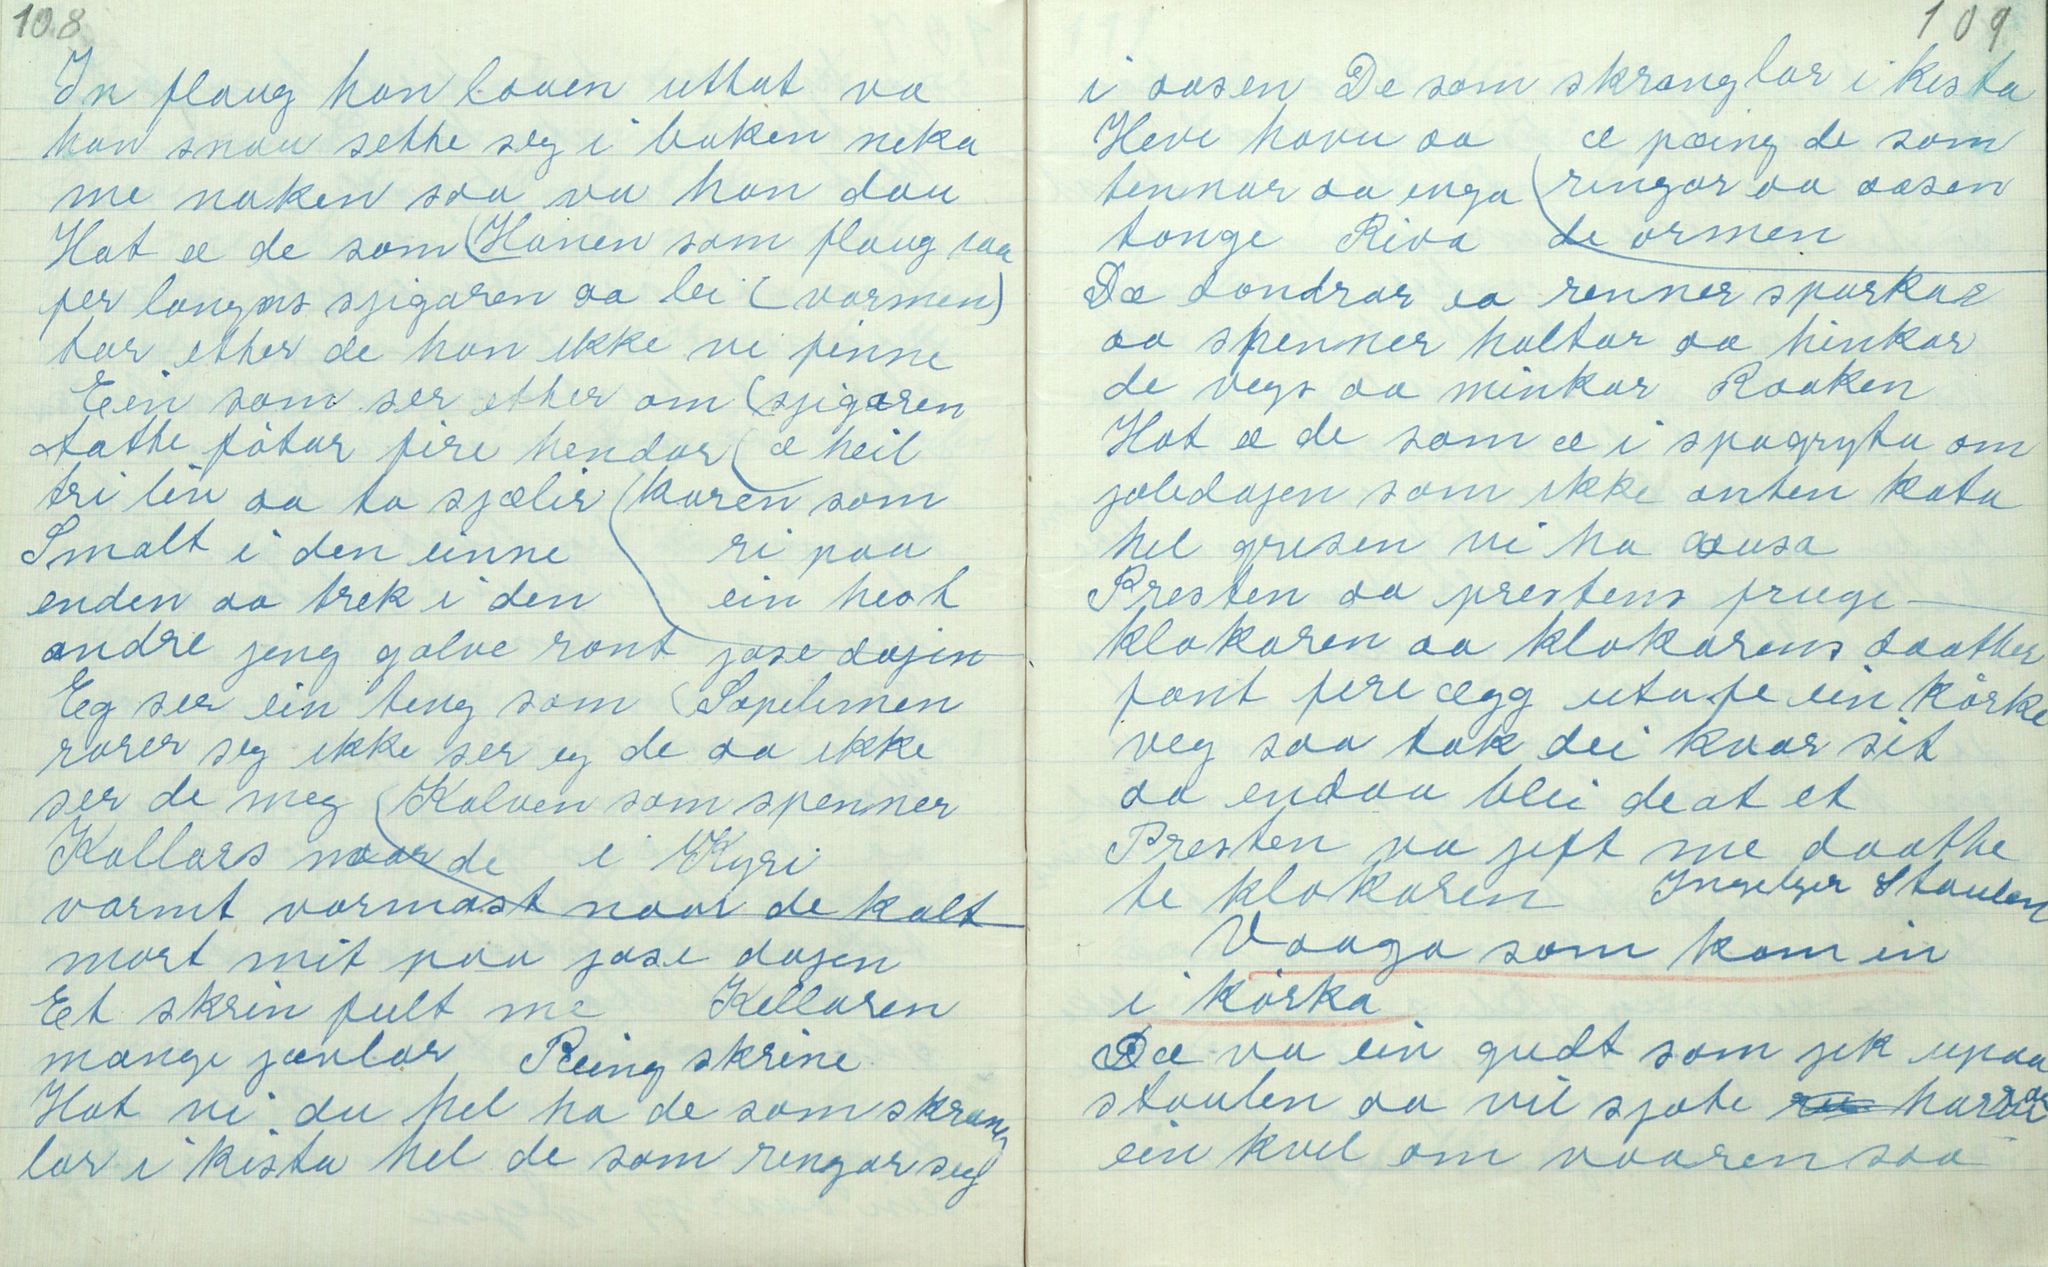 108
In flaug han laaen uttat va
han snau sette seg i baken neka
me naken saa va han dau
Hat æ de som (Hanen som flaug
fer langs sjigaren aa lei (varmen)
tar etter de han ikke vi finne
Ein som ser etter om (sjigaren
tatte fôtar fire hendar (æ heil
tri lin aa to sjælir (karen som
Smalt i den einne ri paa
enden aa trek i den ein hest
andre jeng golve ront jase dajen
Eg ser ein teng som (Sopelimen
rører seg ikke ser eg de aa ikke
ser de meg (Kalven som spenner
Kallars naar de i Kyri
varmt varmast naar de kalt
mørt mit paa jase dajen
Et skrin fult me Kellaren
mange javlar Peing skrine
Hat vi du hel ha de som skrang
lar i kista hel de som rengar seg
109
i aasen De som skranglar i kista
Heve havu aa æ pæing de som
tennar aa enga (rengar aa aasen
tonge Riva de ormen
Dæ dondrar aa renner sparkar
aa spenner haltar aa hinkar
de veys aa minkar Raaken
Hat æ de som æ i spagryta om
joledajen som ikke anten kata
hel gresen vi ha ausa
Presten aa prestens fruge
klokaren aa klokarens daatter
fant fire ægg utafe ein kôrke
veg saa tok dei kvar sit
aa endaa blei deat et
Presten va jeft me daatte
te klokaren Ingebjer Staulen
Vaaga som kom in
i kôrka
Dæ va ein gudt som jek upaa
staulen aa vil sjøte harar
ein kvel om vaaren saa